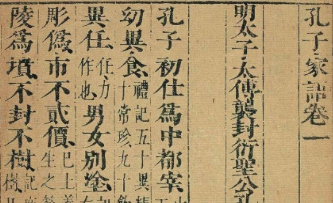 孔子家語卷一
明太子太傅襲封衍聖公孔
孔子初仕爲中都宰
幼異食 禮記五十異粻 十常珍九十飲
異任 任力作也 男女別塗
彫僞市不貳價
陵爲墳不封不樹